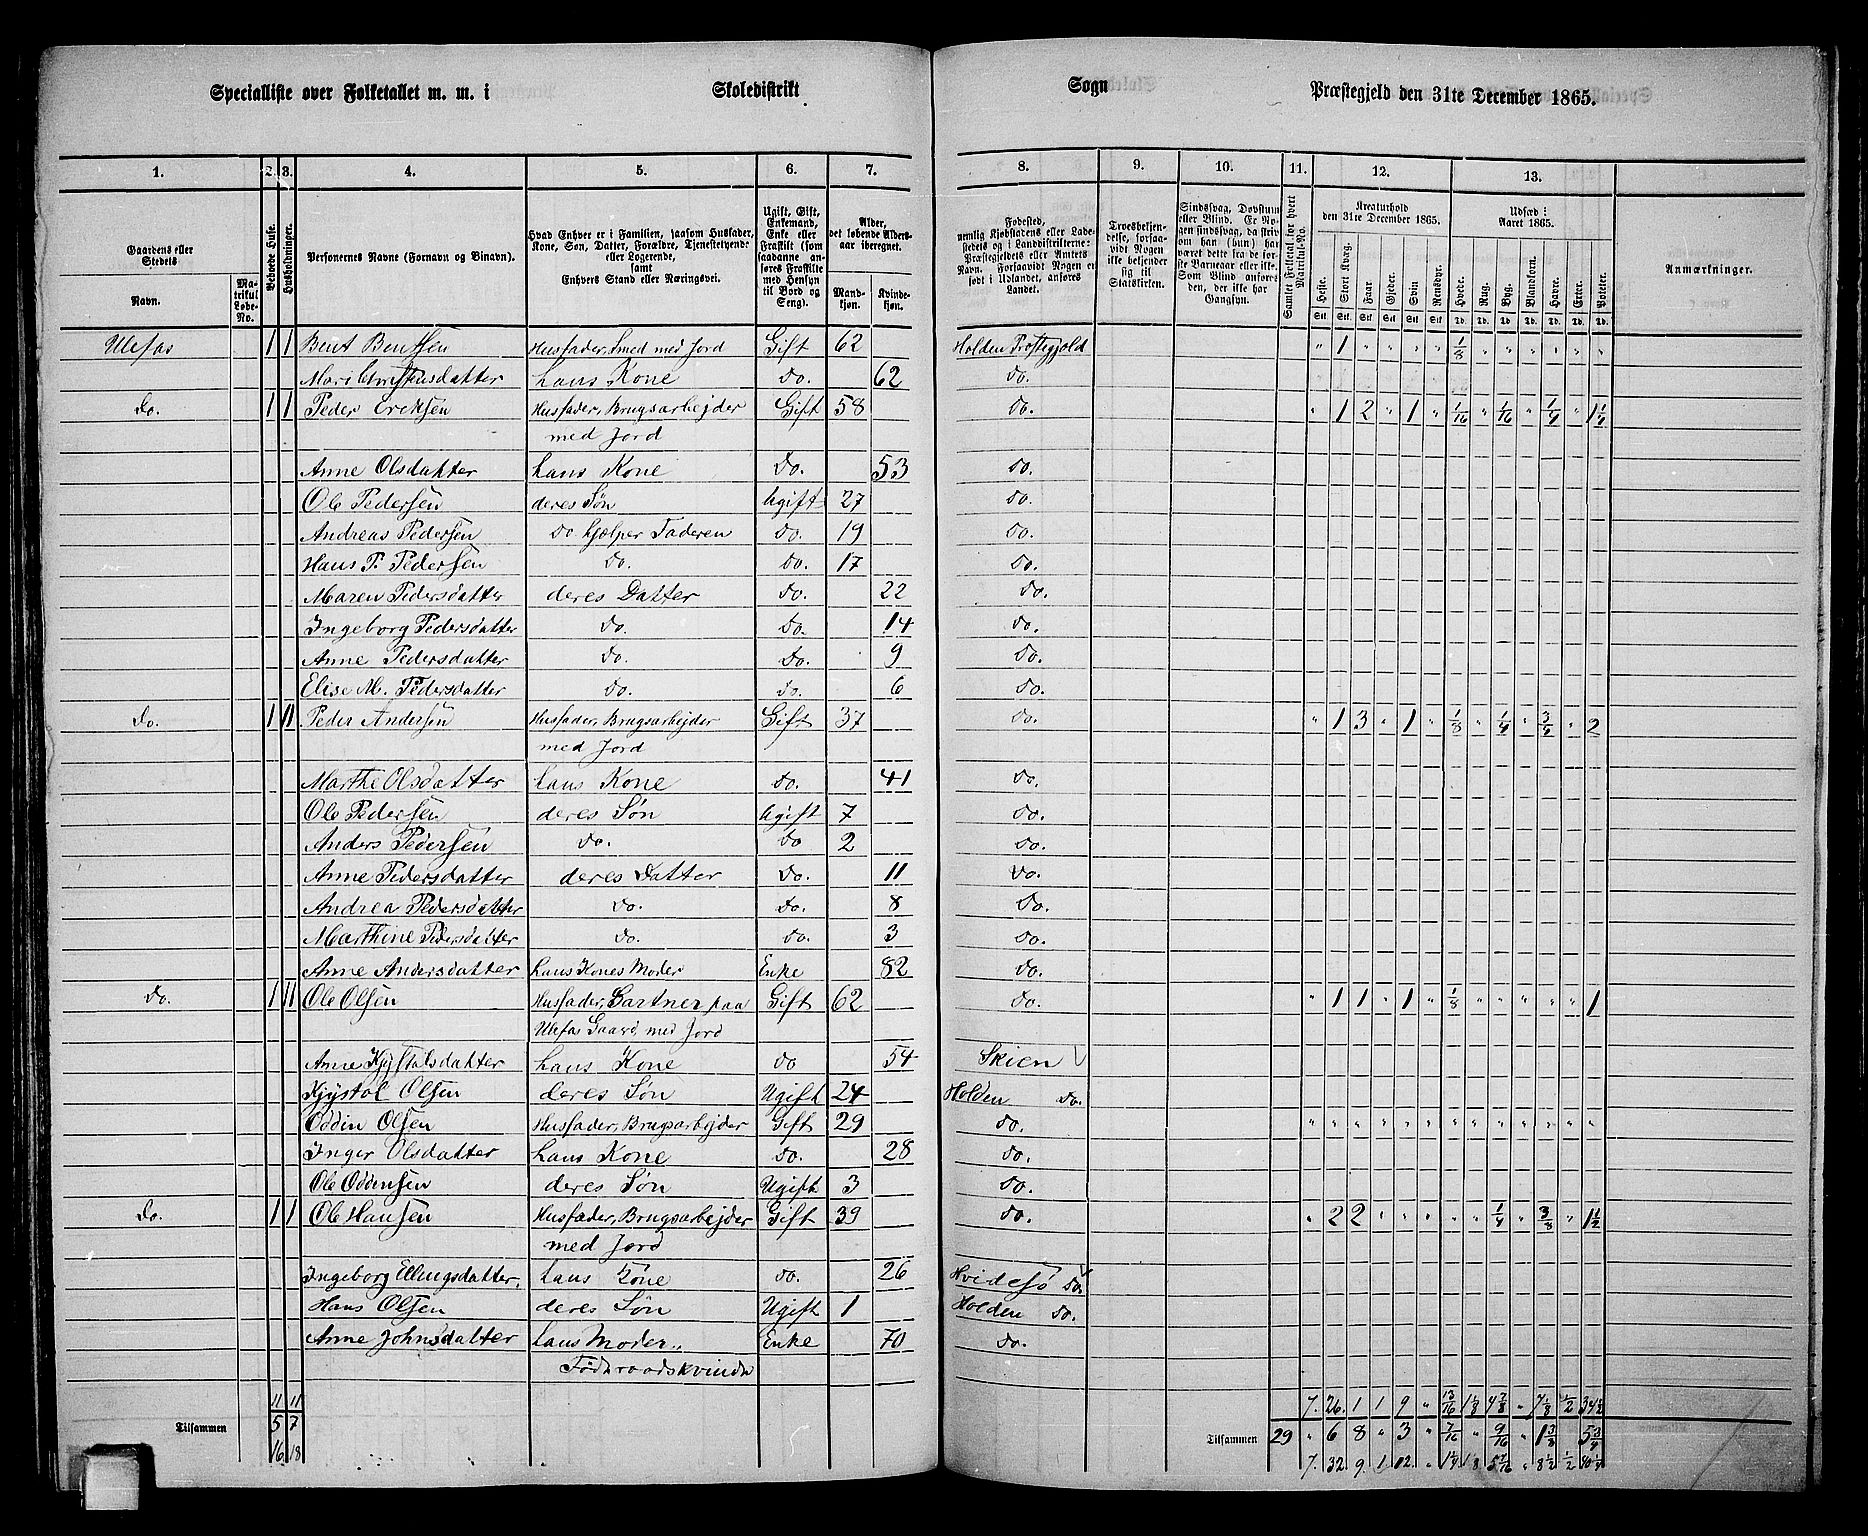 Specialliste over Folketallet m. m. i Skoledistrikt Sogn Præstegjeld den 31te December 1865.
1. 2. 3. 4. 5. 6. 7. 8. 9. 10. 11. 12. 13.
Gaardens eller Stedets Navn. Matrikul Løbe-No. Beboede Huse. Husholdninger. Personernes Navne (Fornavn og Binavn). Hvad Enhver er i Familien, saasom Husfader, Kone, Søn, Datter, Forældre, Tjenestetyende eller Logerende, samt Enhvers Stand eller Næringsvei. Ugift, Gift, Enkemand, Enke eller Fraskilt (som saadanne anføres Fraskilte med Hensyn til Bord og Seng). Alder, det løbende Aldersaar iberegnet. Mandkjøn. Kvindekjøn.
Fødested, nemlig Kjøbstadens eller Ladestedets og i Landdistrikterne: Præstegjeldets eller Amtets Navn. Forsaavidt Nogen er født i Udlandet, anføres Landet. Troesbekjendelse, forsaavidt Nogen ikke bekjender sig til Statskirken. Sindssvag, Døvstum eller Blind. Er Nogen sindssvag, da skriv om han (hun) har været dette fra de første Barneaar eller ikke. Som Blind anføres den, der ikke har Gangsyn. Samlet Folketal for hvert Matrikul-No. Kreaturhold den 31te December 1865. Heste. Stort Kvæg. Faar Gjeder. Svin Rensdyr. Udsæd i Aaret 1865. Hvede. Rug. Byg. Blandkorn. Havre. Erter. Poteter. Anmærkninger.
Ulefos 1 1 Bent Bentsen Husfader, Smed med Jord Gift 62 Holden Præstegjeld " 1 " " " " 1/8 " " " " " "
Mari hans Kone do. 62 do.
Do. 1 1 Peder Ericksen Husfader, Brugsarbejder Gift 58 do. " 1 2 " 1 " 1/16 " 1/16 " 1/4 " 1 1/4
med Jord
Anne Olsdatter hans Kone do. 53 do.
Ole Pedersen deres Søn Ugift 27 do.
Andreas Pedersen do hjælper Faderen do. 19 do.
Hans P. Pedersen do. do. 17 do.
Maren Pedersdatter deres Datter do. 22 do.
Ingeborg Pedersdatter do. do. 14 do.
Anne Pedersdatter do. do. 9 do.
Elise M. Pedersdatter do. do. 6 do.
Do. 1 1 Peder Andersen Husfader, Brugsarbejder Gift 37 do. " 1 3 " 1 " 1/8 " 1/4 " 3/4 " 2
med Jord
Marthe Olsdatter hans Kone do. 41 do.
Ole Pedersen deres Søn Ugift 7 do.
Anders Pedersen do. do 2 do.
Anne Pedersdatter deres Datter do. 11 do.
Andrea Pedersdatter do. do. 8 do.
Marthine Pedersdatter do. do. 3 do.
Anne Andersdatter hans Kones Moder Enke 82 do.
Do. 1 11 Ole Olsen Husfader, Gartner paa Gift 62 do. " 1 1 " 1 " 1/8 " " " " " 1
Ulefos Gaard med Jord
Anne Kjøstolsdatter hans Kone do 54 Skien
Kjøstol Olsen deres Søn Ugift 24 Holden do.
Oddin Olsen Husfader, Brugsarbejder Gift 29 do. " " " " " " " " " " " " "
Inger Olsdatter hans Kone do. 28 do.
Ole Oddensen deres Søn Ugift 3 do.
Do. 1 1 Ole Hansen Husfader, Brugsarbejder Gift 39 do. " 2 2 " " " " " 1/4 " 3/8 " 1 1/2
med Jord
Ingeborg Ellingsdatter. hans Kone do. 26 Hvidesø do.
Hans Olsen deres Søn Ugift 1 Holden do.
Anne Johnsdatter hans Moder, Enke 70 do.
Føderaadskvinde
11 11 7. 26. 1 1 9 " 13/16 1 1/8 4 7/8 " 7 1/8 1/2 34 1/2
Tilsammen 5 7 Tilsammen 29 " 6 8 " 3 " 7/16 " 9/16 " 1 3/8 " 5 3/4
16 18 7. 32 9. 1 12. " 1 1/4 1 1/8 5 7/16 " 8 1/2 1/2 40 1/4